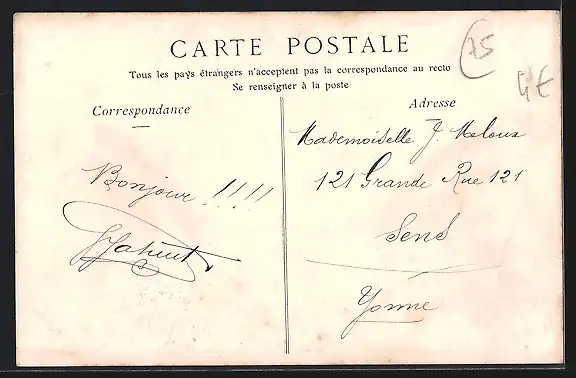 CARTE POSTALE
Tous les pays étrangers n'acceptent pas la correspondance au recto
Se renseigner à la poste
75
4€
Correspondance
Bonjour !!!!
Adresse
Mademoiselle J. Meloux
121 Grande Rue 121
Sens
Yonne